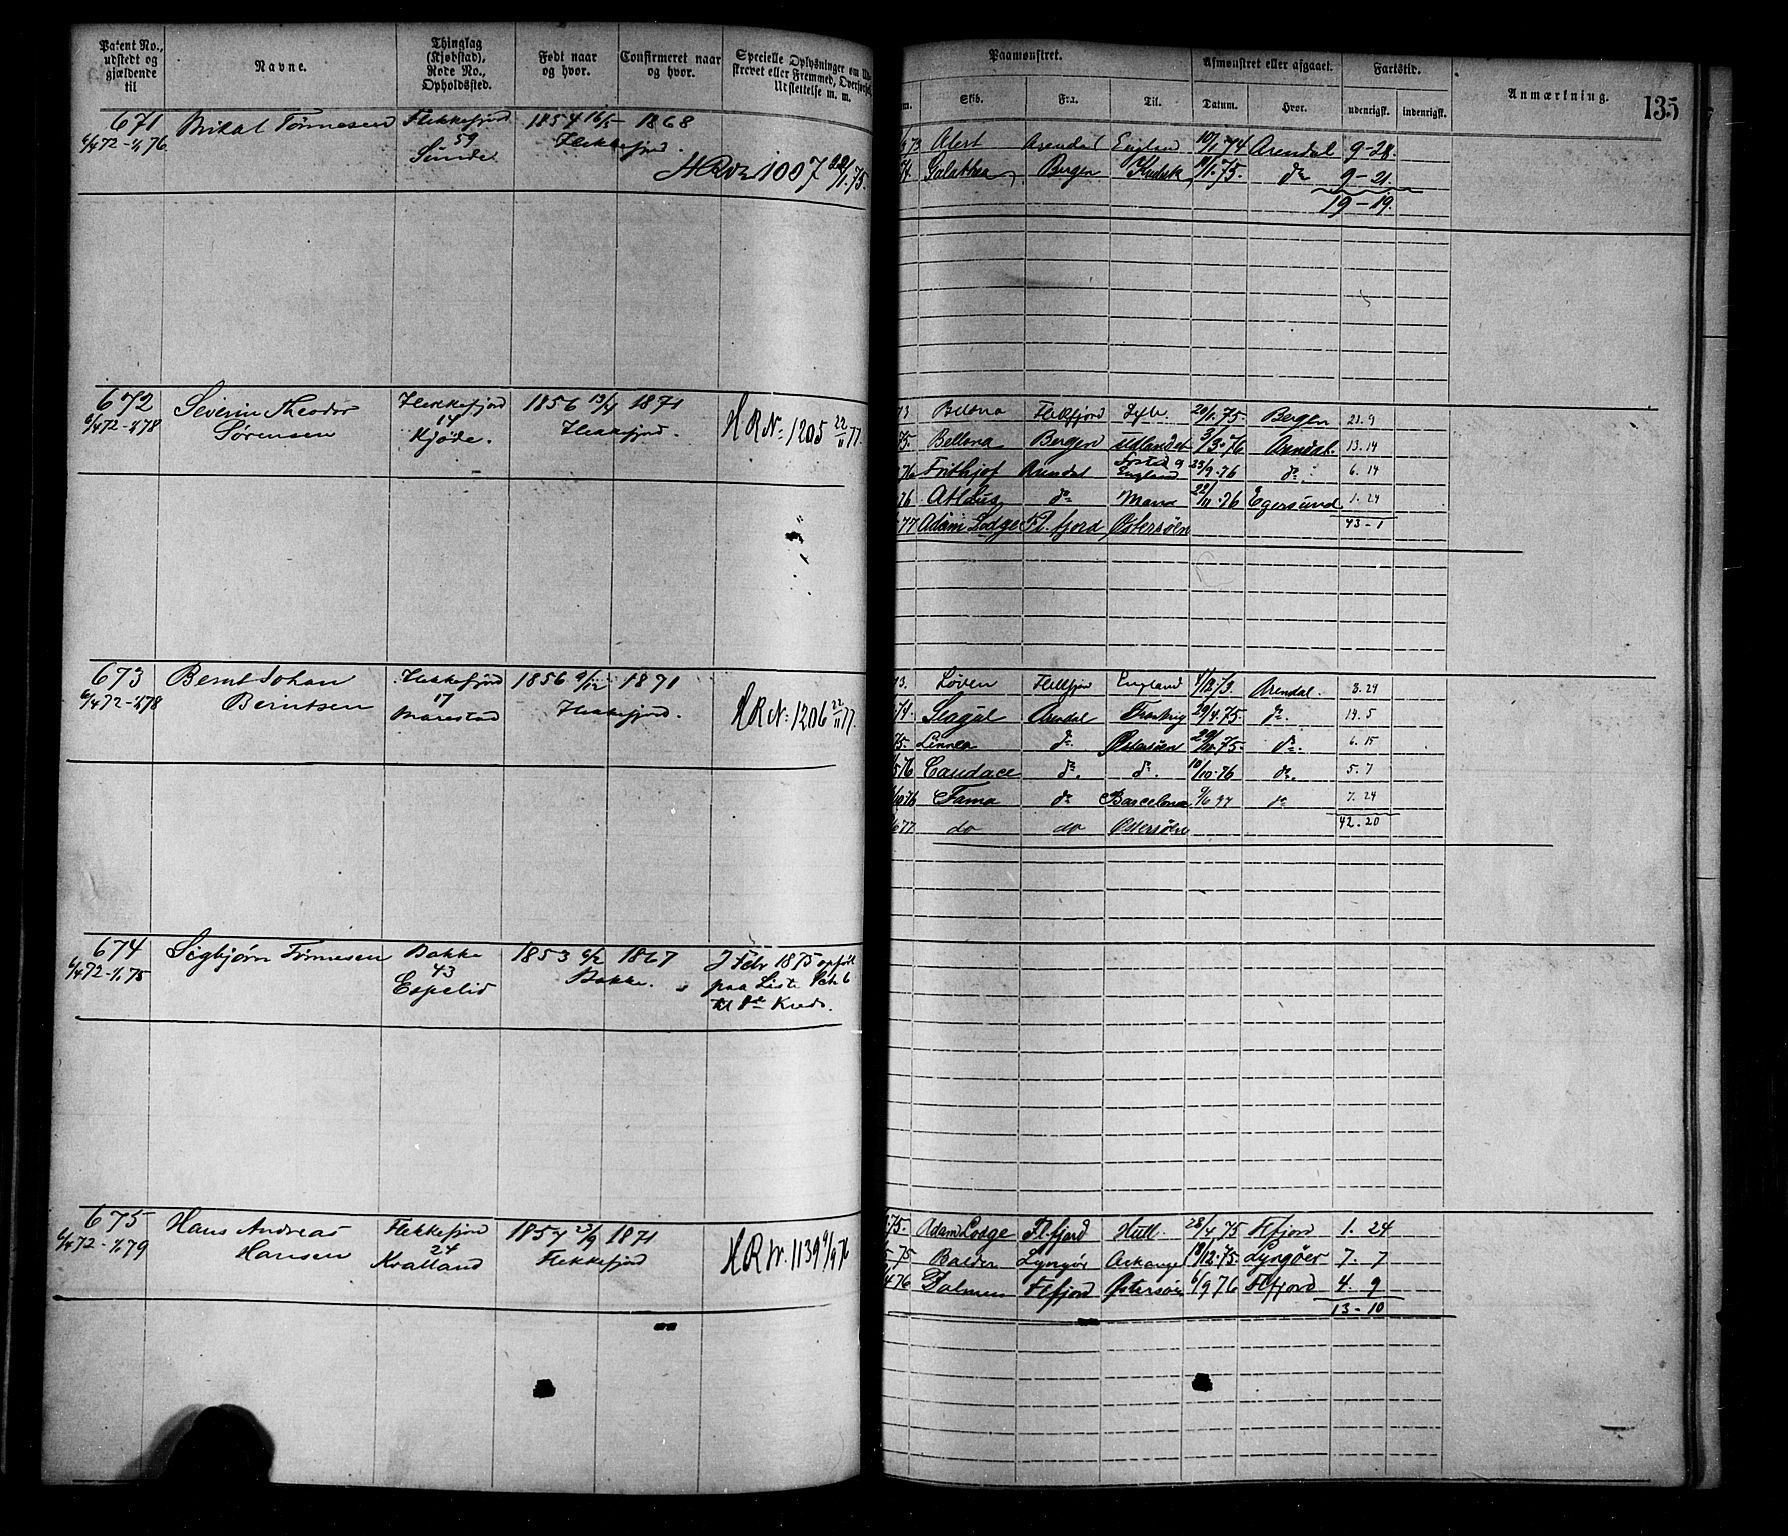 Patent No., udstedt og gjældende til
Navne.
Thinglag (Kjøbstad), Rode No., Opholdssted.
Født naar og hvor.
Confirmeret naar og hvor.
Specielle Oplysninger om
Paamønstret.
Skib.
Fra.
Til.
Afmønstret eller afgaaet.
Datum.
Hvor.
Fartstid.
udenrigsk.
indenrigsk.
Anmærkning.
135
671 Mikal Tønnesen Flekkefjord 1854 16/5 1868
6/4 72-1/1 76 59 Flekkefjord.
Sunde
HR No 1007 22/1.75.
73 Alert Arendal England 10/1 74 Arendal 9-28.
74. Galathea Bergen 9/1.75. do 9-21.
19-19.
672 Severin Theodor Flekkefjord 1856 13/4 1871
6/4 72-1/1 78 Sørensen 14 Flekkefjord.
Kjøde.
HR No: 1205 22/11 77.
73 Belona Flekkfjord 20/1.75 Bergen 22.9
75. Bellona Bergen Udlandet 3/3.76 Arendal. 13.14
76 Frithjof Arendal England 23/9.76 do 6.14
76 Atlas do 22/11.76 Egersund 1.24
77 Adam Lodge Fl.fjord Østersøen 43-1
673 Bernt Johan Flekkefjord 1856 9/12 1871
6/4 72-1/1 78 Berntsen 17 Flekkefjord.
Marestad
HR No: 1206 22/11 77.
73. Løven Flekkfjord England 4/12 73. Arendal. 8.24
74. Arendal 29/4.75. do. 14.5
75. Linnea do. Østersøen 29/10.75. do. 6.15
76 Candace do. do. 10/10.76 do. 5.7
76 Fama do Barcelona 9/6 77 do 7.24
77 do do Østersøen 42.20
674 Sigbjørn Tønnesen Bakke 1853 6/2 1867
6/4 72-1/1 75 43 Bakke.
Espelid
I Febr 1875 opført
paa Liste
til Kreds.
675 Hans Andreas Flekkefjord 1857 23/9 1871
6/4 72-1/1 79 Hansen 24 Flekkefjord
Kvalland
HR No. 1139 9/9 76
75. Adam Lodge Fl.fjord Hull. 28/4 75 Flfjord 1. 24
75 Balder Lyngør Arkangel 18/12.75. Lyngøer 7. 7
76 Dalmen Flfjord Østersøen 6/9 76 Flfjord 4. 9
13-10